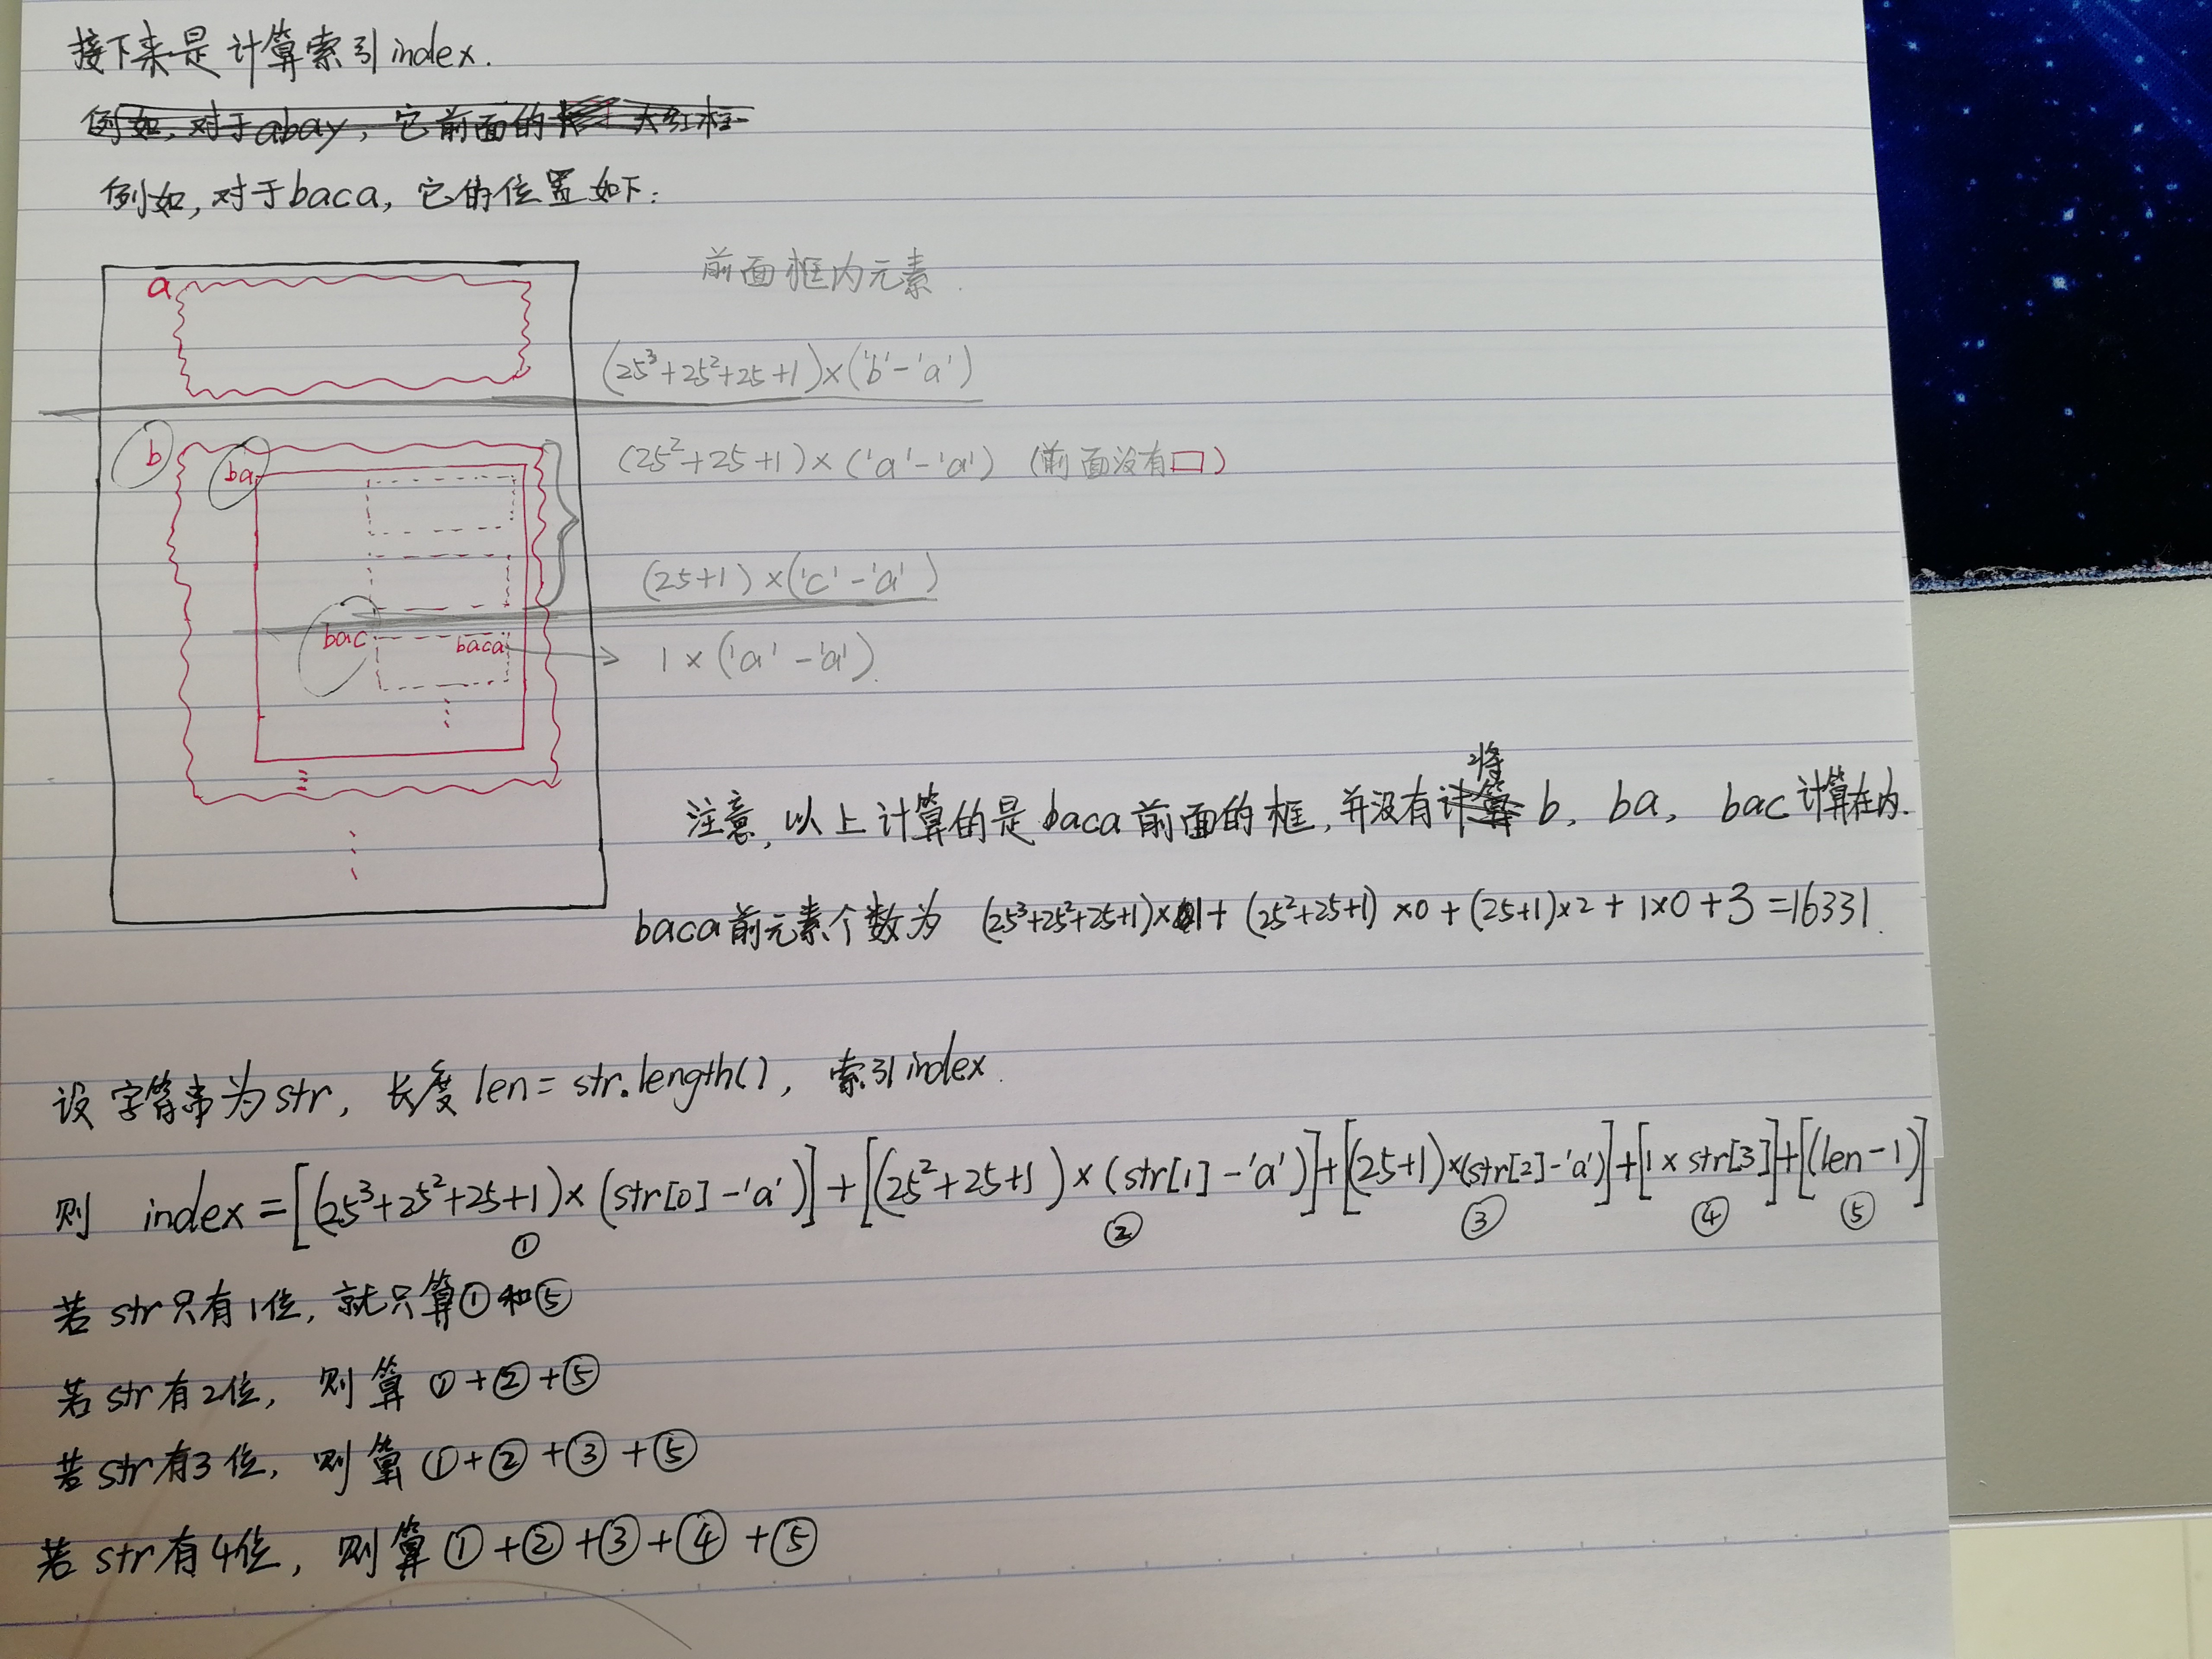 接下来是计算索引index.
例如,对于abay,它前面的 大红框
例如,对于baca,它的位置如下:
前面框内元素.
a
(25³+25²+25+1)×('b'-'a')
b
ba
(25²+25+1)×('a'-'a') (前面没有口)
(25+1)×('c'-'a')
bac
baca
1×('a'-'a').
注意,以上计算的是baca前面的框,并没有计算将b, ba, bac计算在内.
baca前元素个数为 (25³+25²+25+1)×1+(25²+25+1)×0+(25+1)×2+1×0+3=16331.
设字符串为str, 长度len=str.length(), 索引index.
则 index=[(25³+25²+25+1)×(str[0]-'a')]+[(25²+25+1)×(str[1]-'a')]+[(25+1)×(str[2]-'a')]+[1×str[3]]+[(len-1)]
① ② ③ ④ ⑤
若str只有1位,就只算①和⑤
若str有2位, 则算①+②+⑤
若str有3位, 则算①+②+③+⑤
若str有4位, 则算①+②+③+④+⑤